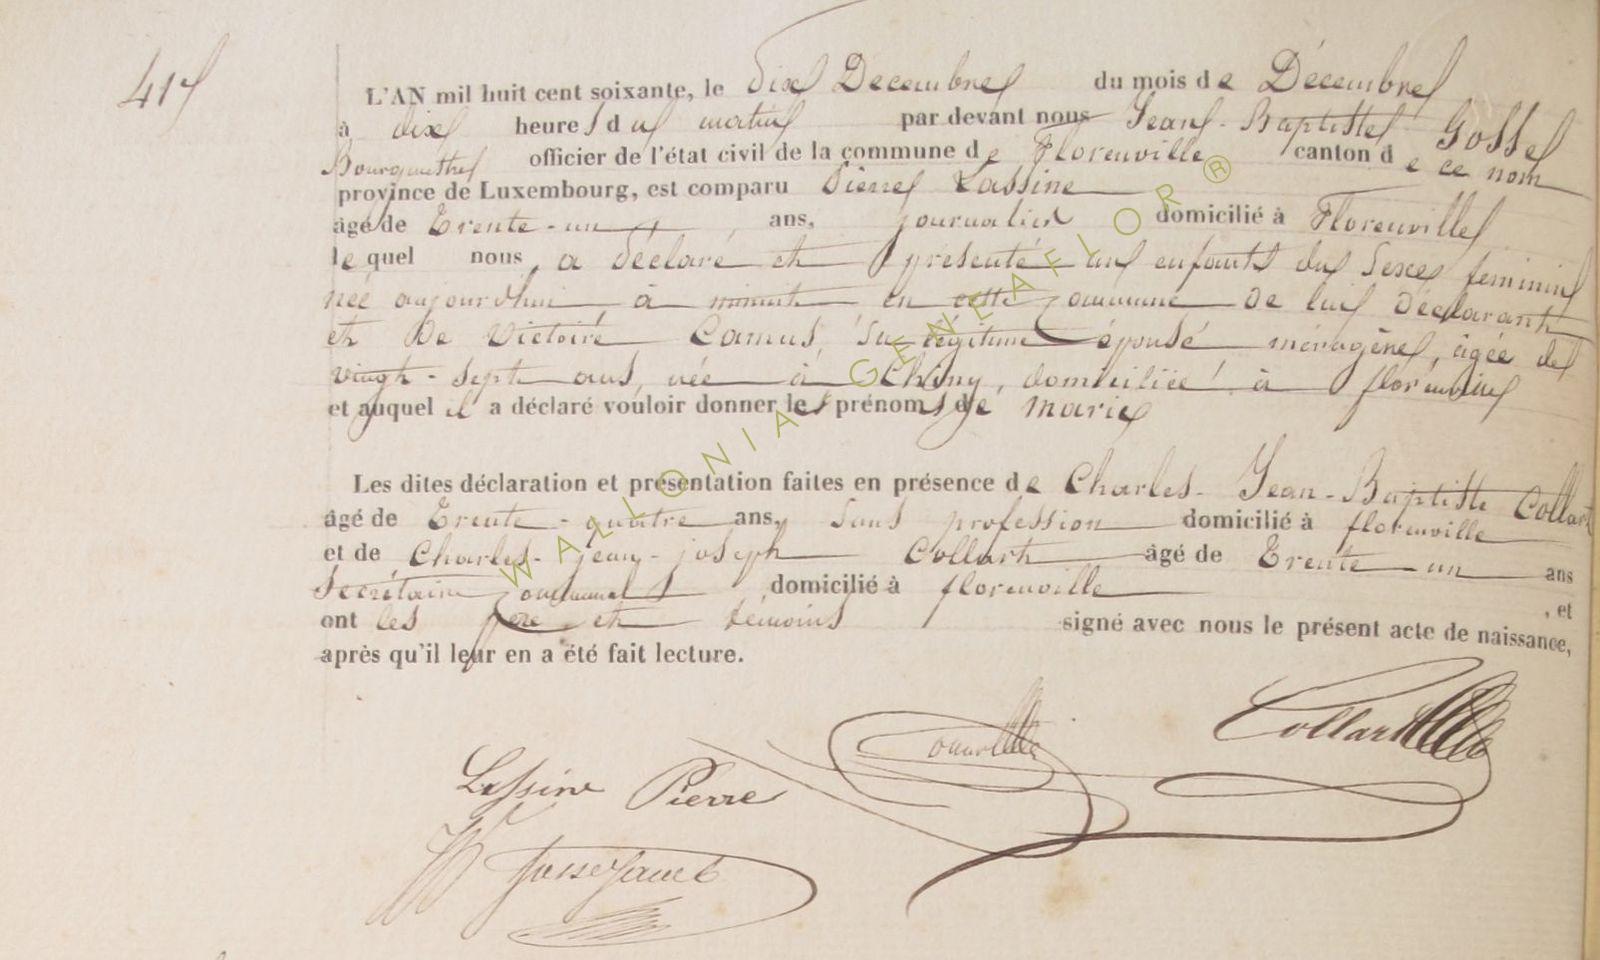 L'AN mil huit cent soixante, le dix Decembre du mois de Décembre
à dix heures du matin par devant nous Jean-Baptiste Gosse
Bourguemestre officier de l'état civil de la commune de Florenville canton de ce nom
province de Luxembourg, est comparu Pierre Lassine
âgé de Trente-un ans, journalier domicilié à Florenville
le quel nous a déclaré et présenté un enfant du sexe feminin
née aujourd'hui à minuit en cette commune de lui déclarant
et de Victoire Camus, sa légitime épouse ménagère, âgée de
vingt-sept ans, née à Chiny, domiciliée à florenville
et auquel il a déclaré vouloir donner les prénoms de marie
Les dites déclaration et présentation faites en présence de Charles-Jean-Baptiste Collart
âgé de Trente-quatre ans, sans profession domicilié à florenville
et de Charles-jean-joseph Collart âgé de Trente-un ans
Secrétaire communal domicilié à florenville , et
ont les père et témoins signé avec nous le présent acte de naissance,
après qu'il leur en a été fait lecture.
Collart
Lassine Pierre
WALLONIA GENEAFLOR ®